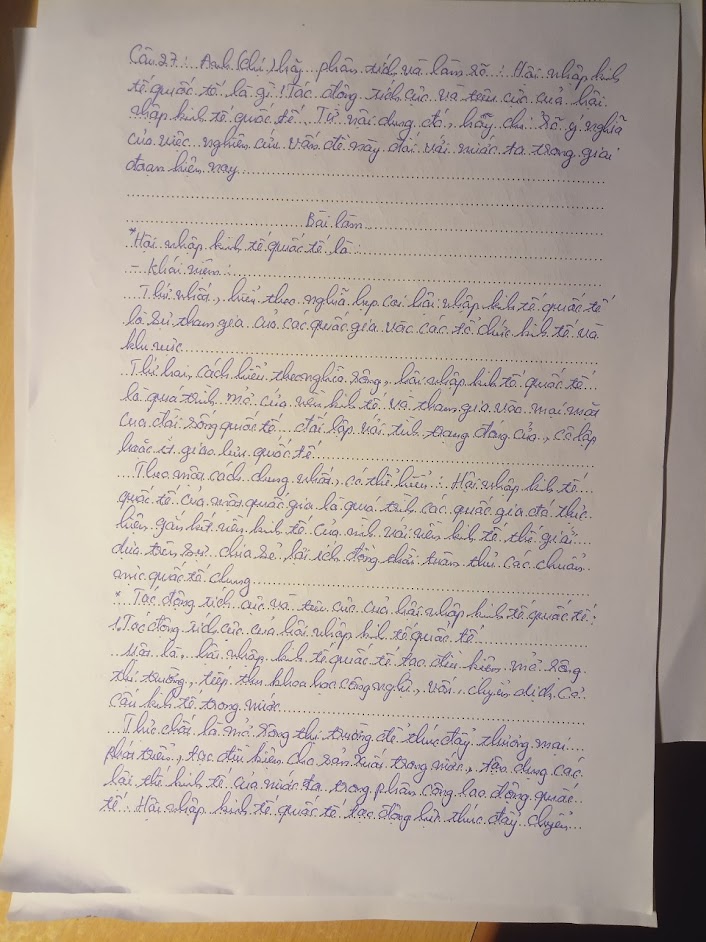 Câu 27: Anh (chị) hãy phân tích và làm rõ: Hội nhập kinh
tế quốc tế là gì! Tác động tích cực và tiêu cực của hội
nhập kinh tế quốc tế. Từ nội dung đó, hãy chỉ rõ ý nghĩa
của việc nghiên cứu vấn đề này đối với nước ta trong giai
đoạn hiện nay
Bài làm
*Hội nhập kinh tế quốc tế là:
- Khái niệm:
Thứ nhất, hiểu theo nghĩa hẹp coi hội nhập kinh tế quốc tế
là sự tham gia của các quốc gia vào các tổ chức kinh tế và
khu vực
Thứ hai, cách hiểu theo nghĩa rộng, hội nhập kinh tế quốc tế
là quá trình mở cửa nền kinh tế và tham gia vào mọi mặt
của đời sống quốc tế đối lập với tình trạng đóng cửa, cô lập
hoặc ít giao lưu quốc tế
Theo một cách chung nhất, có thể hiểu: Hội nhập kinh tế
quốc tế của một quốc gia là quá trình các quốc gia đó thực
hiện gắn kết nền kinh tế của mình với nền kinh tế thế giới
dựa trên sự chia sẻ lợi ích đồng thời tuân thủ các chuẩn
mực quốc tế chung
* Tác động tích cực và tiêu cực của hội nhập kinh tế quốc tế:
1. Tác động tích cực của hội nhập kinh tế quốc tế
Một là, hội nhập kinh tế quốc tế tạo điều kiện mở rộng
thị trường, tiếp thu khoa học công nghệ, vốn, chuyển dịch cơ
cấu kinh tế trong nước
Thực chất là mở rộng thị trường để thúc đẩy thương mại
phát triển, tạo điều kiện cho sản xuất trong nước, tận dụng các
lợi thế kinh tế của nước ta trong phân công lao động quốc
tế. Hội nhập kinh tế quốc tế tạo động lực thúc đẩy chuyển